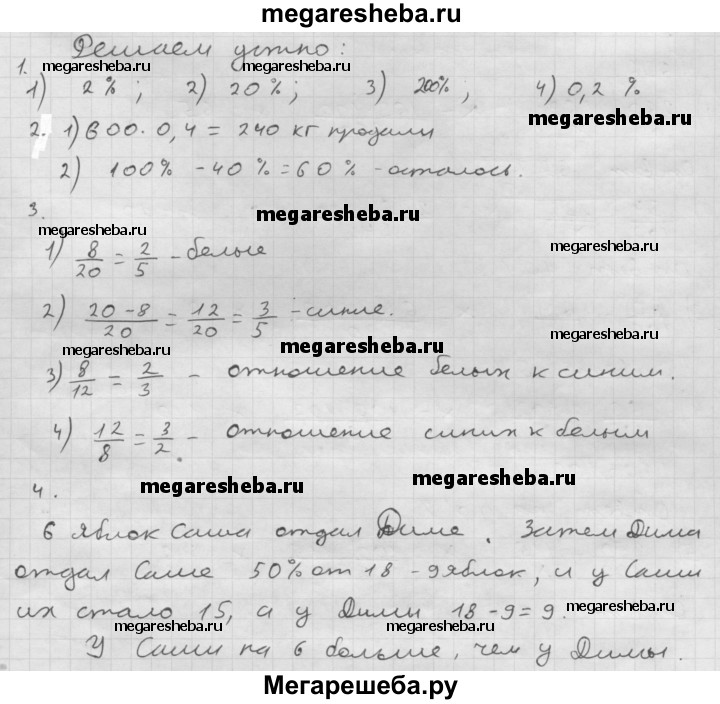 megaresheba.ru
Решаем устно:
1.
megaresheba.ru megaresheba.ru
1) 2%; 2) 20%; 3) 200%, 4) 0,2 %
megaresheba.ru
2. 1) 600 · 0,4 = 240 кг продали
2) 100% - 40% = 60% - осталось.
3.
megaresheba.ru
megaresheba.ru megaresheba.ru
1) 8/20 = 2/5 - белые
2) 20-8/20 = 12/20 = 3/5 - синие.
megaresheba.ru megaresheba.ru
3) 8/12 = 2/3 - отношение белых к синим.
4) 12/8 = 3/2 - отношение синих к белым
4.
megaresheba.ru megaresheba.ru
6 яблок Саша отдал Диме. Затем Дима
отдал Саше 50% от 18 - 9 яблок, и у Саши
их стало 15, а у Димы 18 - 9 = 9.
megaresheba.ru
megaresheba.ru megaresheba.ru
У Саши на 6 больше, чем у Димы.
Мегарешеба.ру